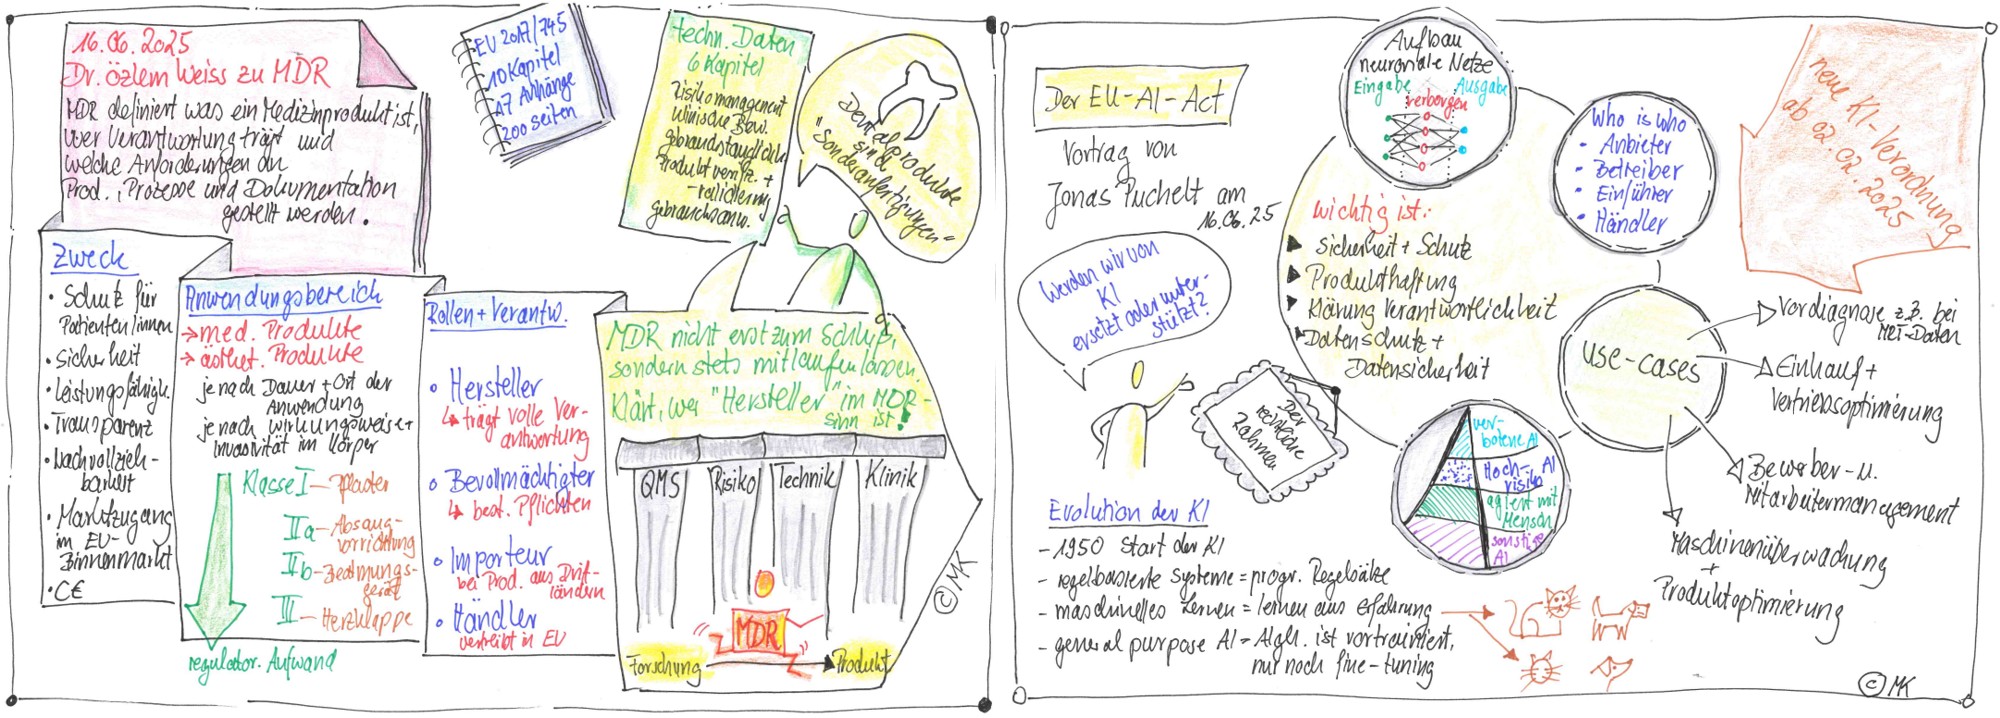 16.06.2025
Dr. Özlem Weiss zu MDR
MDR definiert was ein Medizinprodukt ist,
wer Verantwortung trägt und
welche Anforderungen an
Prod., Prozesse und Dokumentation
gestellt werden.
EU 2017/745
10 Kapitel
17 Anhänge
200 Seiten
techn. Daten
6 Kapitel
Risikomanagement
klinische Bew.
gebrauchstauglichk.
Produkt verifiz. +
-validierung
gebrauchsanw.
Dentalprodukte
sind
"Sonderanfertigungen"
Zweck
• Schutz für
Patienten/innen
• Sicherheit
• Leistungsfähigk.
• Transparenz
• Nachvollzieh-
barkeit
• Marktzugang
im EU-
Binnenmarkt
• C€
Anwendungsbereich
→ med. Produkte
→ ästhet. Produkte
je nach Dauer + Ort der
Anwendung
je nach Wirkungsweise +
Invasivität im Körper
Klasse I – Pflaster
IIa – Absaug-
vorrichtung
IIb – Beatmungs-
gerät
III – Herzklappe
regulator. Aufwand
Rollen + Verantw.
• Hersteller
↳ trägt volle Ver-
antwortung
• Bevollmächtigter
↳ best. Pflichten
• Importeur
bei Prod. aus Dritt-
ländern
• Händler
vertreibt in EU
MDR nicht erst zum Schluß,
sondern stets mitlaufen lassen.
Klärt, wer "Hersteller" im MDR-
Sinn ist!
QMS Risiko Technik Klinik
MDR
Forschung → Produkt
© MK
Der EU-AI-Act
Vortrag von
Jonas Puchelt am
16.06.25
Werden wir von
KI
ersetzt oder unter-
stützt?
Der
rechtliche
Rahmen
Aufbau
neuronale Netze
Eingabe Ausgabe
verborgen
Who is who
- Anbieter
• Betreiber
• Einführer
• Händler
neue KI-Verordnung
ab 02.02.2025
wichtig ist:
Sicherheit + Schutz
Produkthaftung
Klärung Verantwortlichkeit
Datenschutz +
Datensicherheit
use-cases
Vordiagnose z.B. bei
MRT-Daten
Einkauf +
Vertriebsoptimierung
Bewerber- u.
Mitarbeitermanagement
Maschinenüberwachung
+
Produktoptimierung
ver-
botene AI
Hoch- AI
risiko
agiert mit
Mensch
sonstige
AI
Evolution der KI
- 1950 Start der KI
- regelbasierte Systeme = progr. Regelsätze
- maschinelles Lernen = lernen aus Erfahrung
- general purpose AI = Algh. ist vortrainiert,
nur noch fine-tuning
© MK